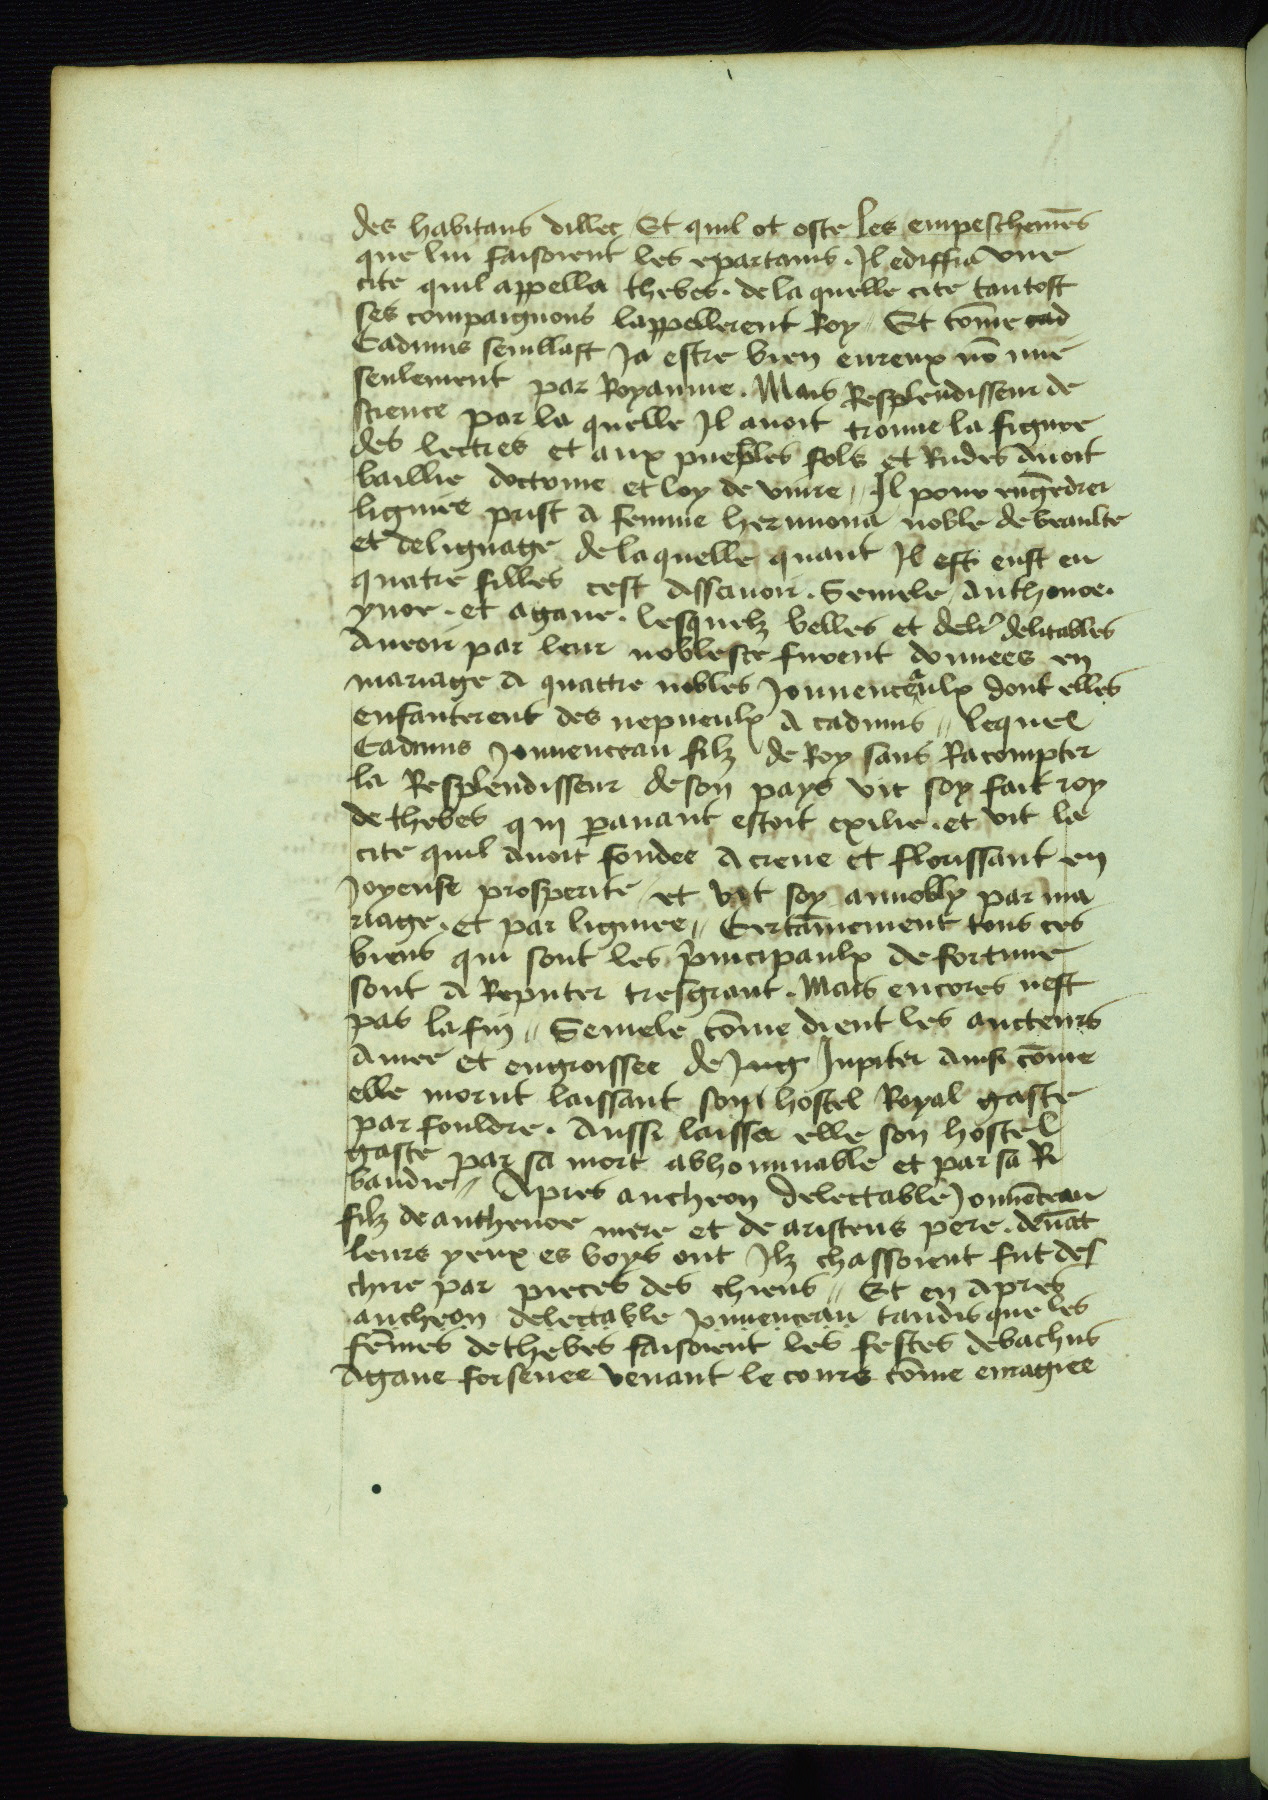 des habitans dillec Et quil ot oste les empeschemẽs
que lui faisoient les epartains. Il ediffia vne
cite quil appella thebes. de la quelle cite tantost
ses compaignons lappellerent Roy // Et cõme cad
Cadmus semblast Ja estre bien eureux nõ mie
seulement par Royaume. Mais Resplendisseur de
science par la quelle Il auoit trouue la figure
des lectres et aux pueples fols et Rudes Auoit
baillie doctrine et loy de viure // Il pour engẽdrer
lignie prist a femme hermiona noble de beaulte
et de lignage de la quelle quant Il est eust eu
quatre filles cest assauoir. Semele Anthonoe.
ynoe. et agaue. lesquelz belles et delitables
Aueon par leur noblesce furent donnees en
mariage a quattre nobles Jouuenceaulx dont elles
enfanterent des nepueulx a cadmus // lequel
Cadmus Jouuenceau filz de Roy sans Racompter
la Resplendisseur de son pays vit soy fait roy
de thebes qui p̃auant estoit exilie. et vit la
cite quil auoit fondee acreue et florissant en
Joyeuse prosperite / et vit soy annobly par ma
riage. et par lignee // Certainement tous ces
biens qui sont les p̃ncipaulx de fortune
sont a Reputer tresgrant. Mais encores nest
pas la fin // Semele cõme dient les aucteurs
Amee et engroissee de Jug Jupiter Ainsi cõme
elle morut laissant son hostel Royal gaste
par fouldre. Aussi laissa elle son hostel
gaste par sa mort abhominable et par sa Ri
baudie // Apres ancheon delectable Jouuẽceau
filz de anthenoe mere et de aristeus pere. deuãt
leurs yeux es boys ont Ilz chassoient fut des
chire par pieces des chiens // Et en apres
ancheon delectable Jouuenceau tandis que les
fẽmes de thebes faisoient les festes de bachus
Agaue forsenee venant le cours cõme enragiee